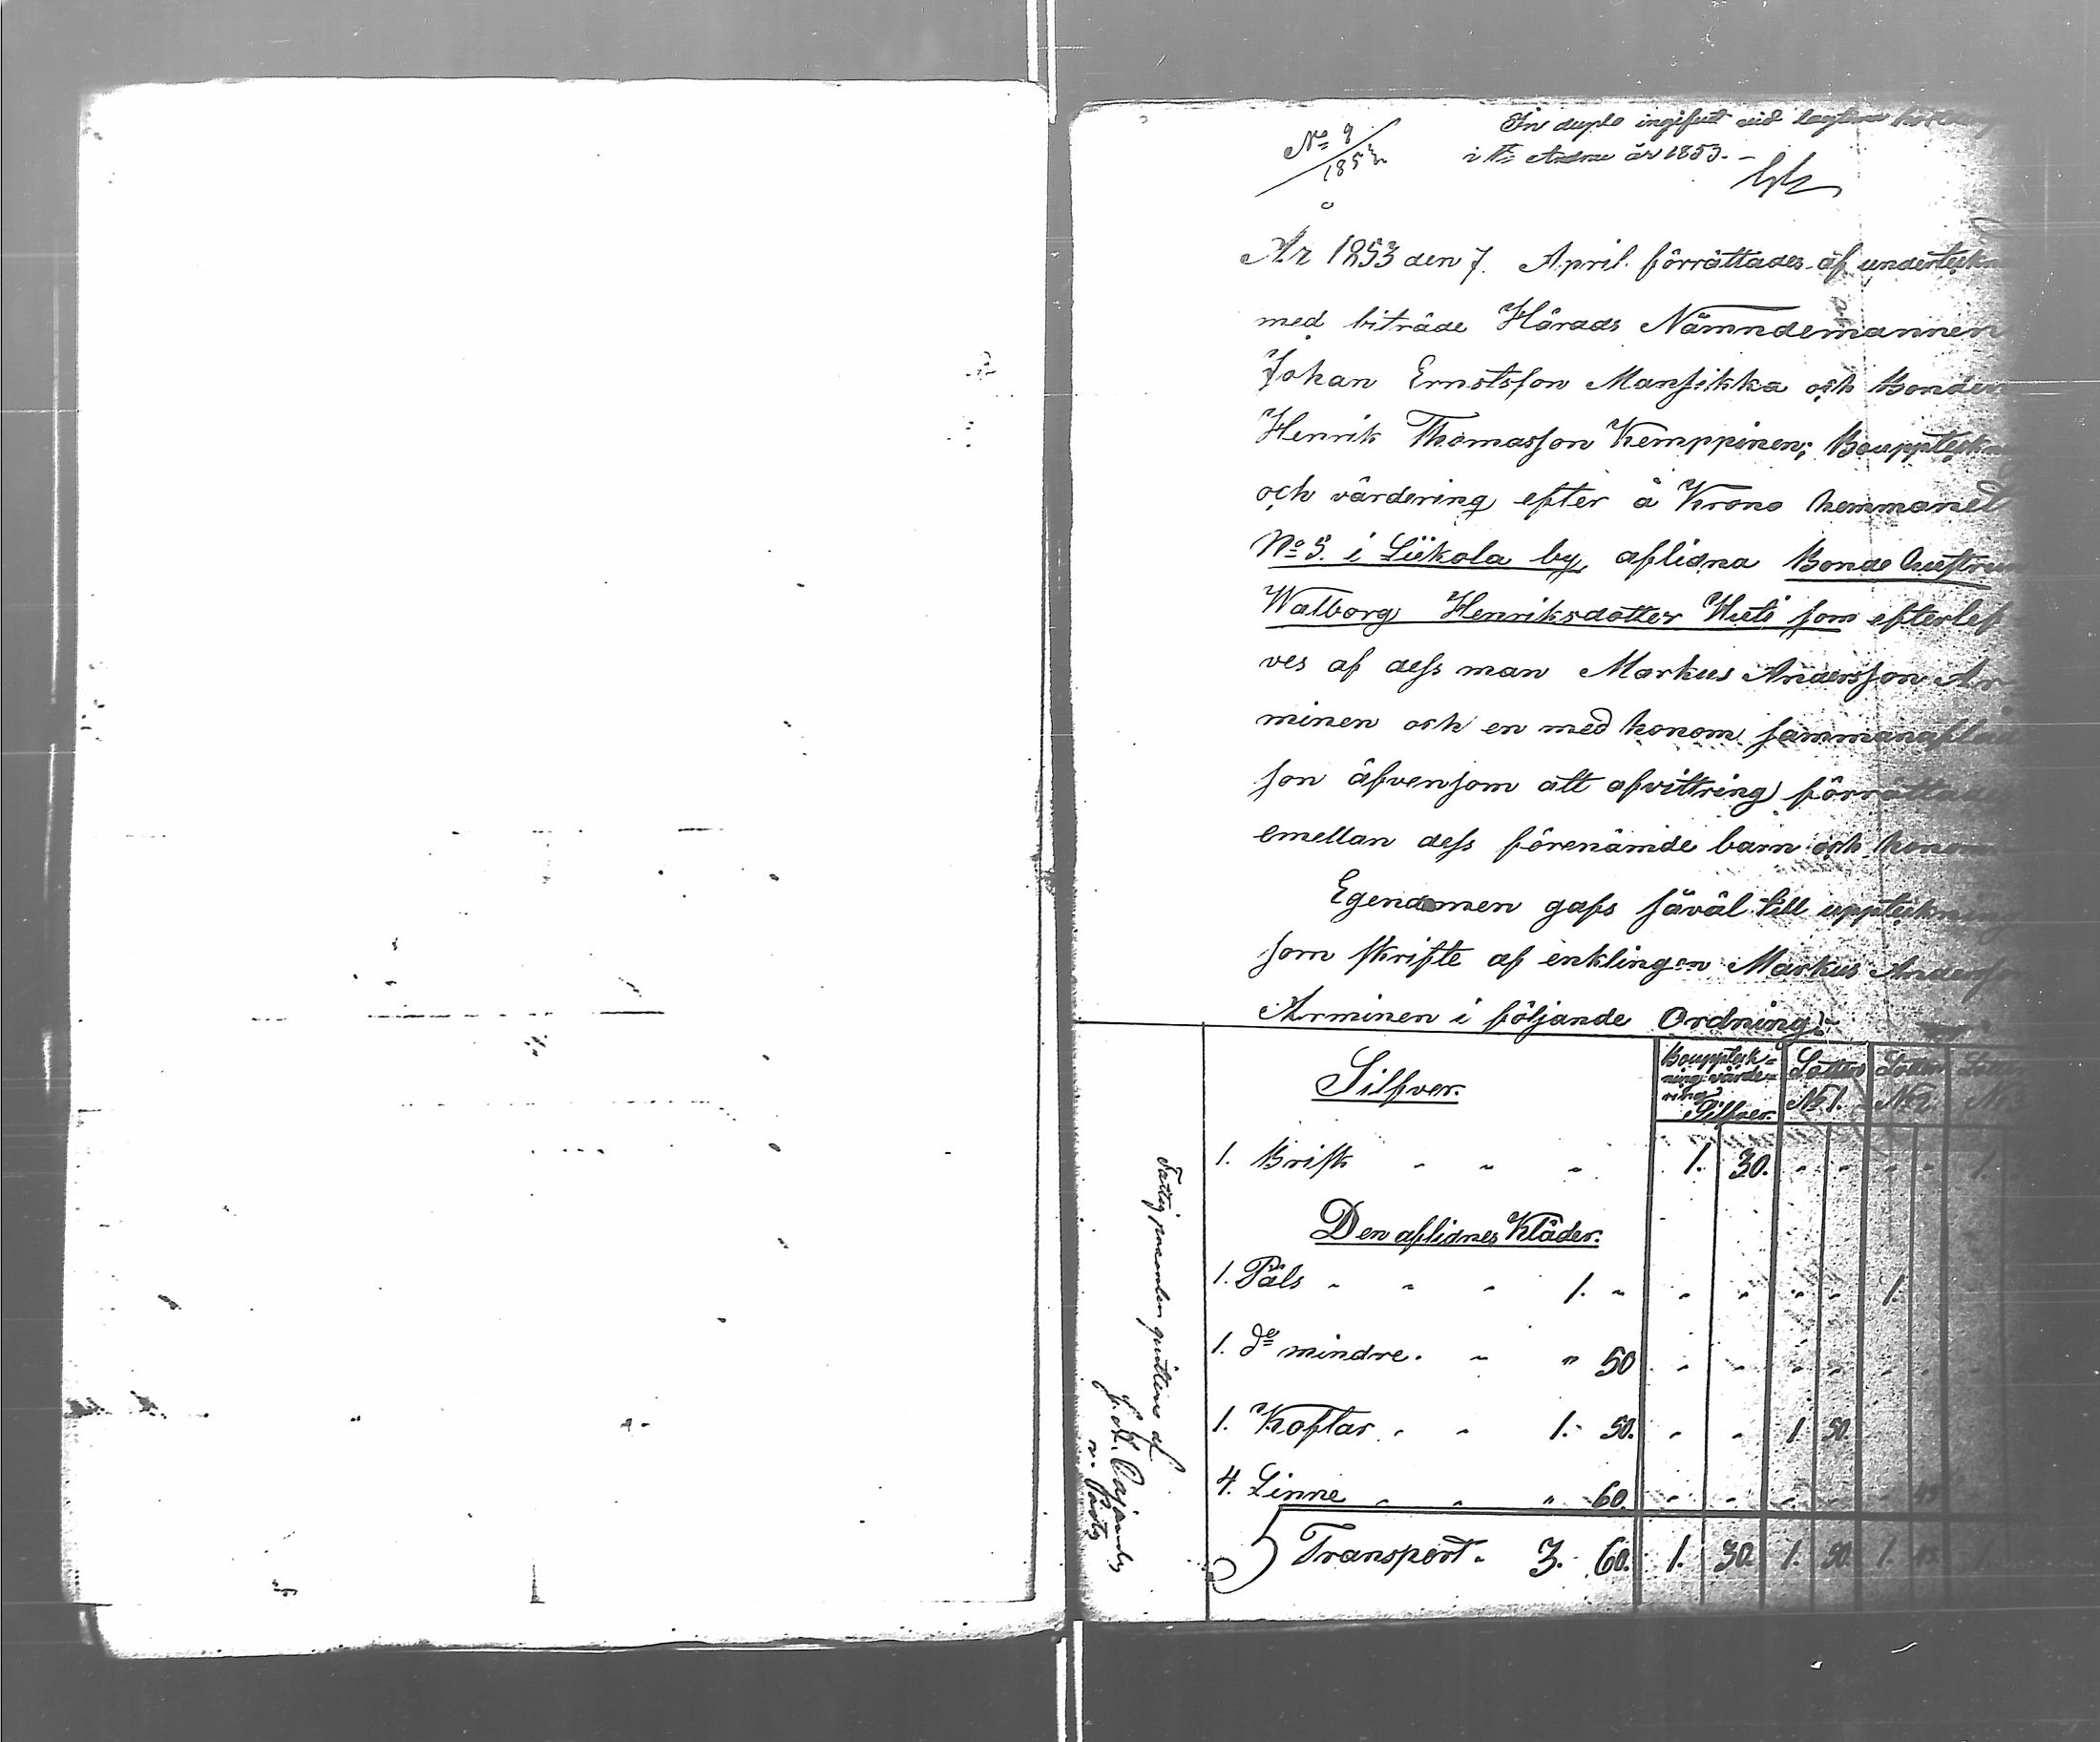 No 9
1853
In duplo ingifvet vid lagtima
i Andrae år 1853. –
År 1853 den 7. April. förrättades af underteckn
med biträde Härads Nämndemannen
Johan Ernstsson Mansikka och Bonden
Henrik Thomasson Kemppinen; Bouppteckn
och värdering efter å Krono hemmanet
No 5. i Liikola by, aflidna Bonde hustrun
Walborg Henriksdotter Huti som efterlef-
ves af dess man Markus Andersson Ar-
minen och en med honom sammanaflad
son äfvensom att afvittring förrättades
emellan dess förenämde barn och honom
Egendomen gafs såväl till uppteckning
som skrifte af enklingen Markus Anderss
Arminen i följande Ordning:
Silfver. Boupptek- Lotten Lotten Lott
ning värde- No 1. No 2. No
ring
Silfver.
1. Brisk " " " 1. 30. " " " " 1.
Den aflidnes Kläder.
1. Päls " " " 1. " " " " " 1.
1. do mindre. " " 50 " " " " " "
1. Koftar " " 1. 50. " " 1. 50.
4. Linne " " " 60. " " " " " 45
Transport. 3. 60. 1. 30. 1. 50. 1. 45 1.
Fattig procenten qvitteras af